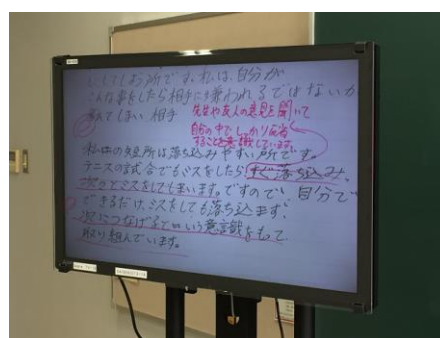 いしてしむ所です。私は、自分が
こんな事をしたら相手に嫌われるではないか
考えてしまい 相手
先生や友人の意見を聞いて
自分の中でしっかり反省
することを意識しています。
私の短所は落ち込みやすい所です。
テニスの試合でもミスをしたらすぐ落ち込み、
次のでミスをしてしまいます。ですので、自分で
できるだけ、ミスをしても落ち込まず、
次につなげるぞという意識をもって
取り組んでいます。